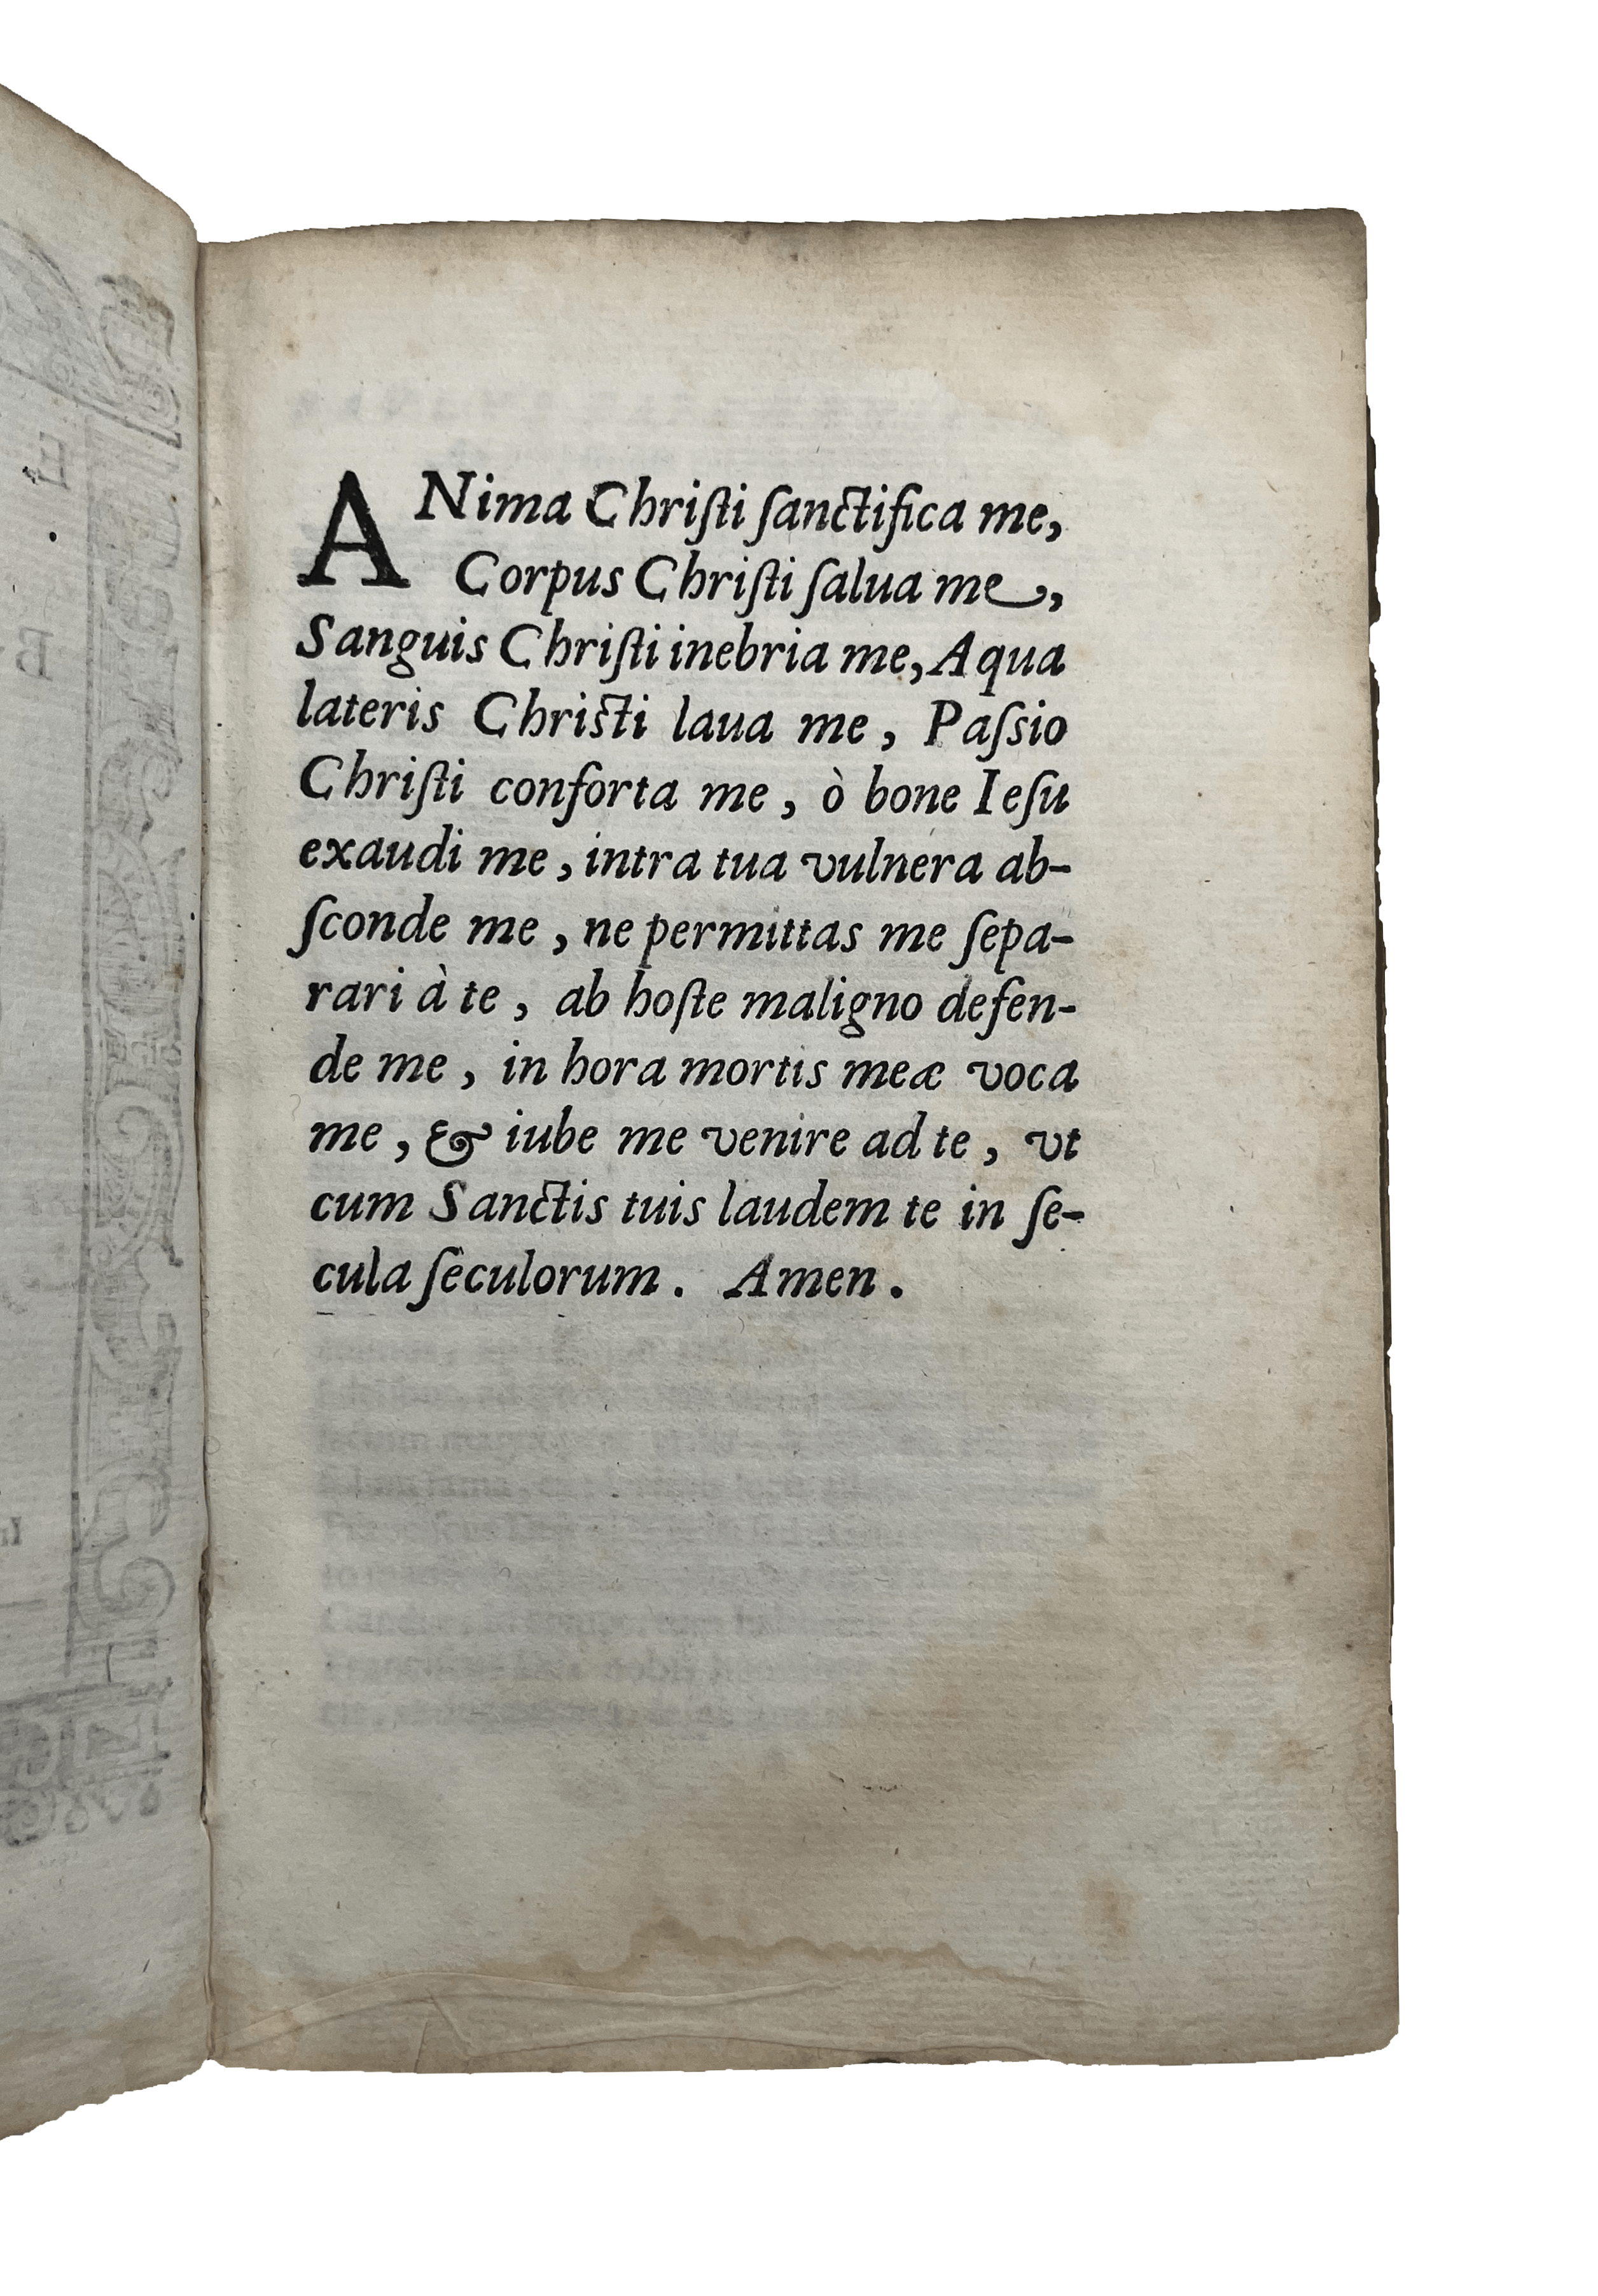 ANima Chriſti ſanctifica me,
Corpus Chriſti ſalua me,
Sanguis Chriſti inebria me, Aqua
lateris Chriſti laua me, Paſsio
Chriſti conforta me, ò bone Ieſu
exaudi me, intra tua vulnera ab-
ſconde me, ne permittas me ſepa-
rari à te, ab hoſte maligno defen-
de me, in hora mortis meæ voca
me, & iube me venire ad te, vt
cum Sanctis tuis laudem te in ſe-
cula ſeculorum. Amen.